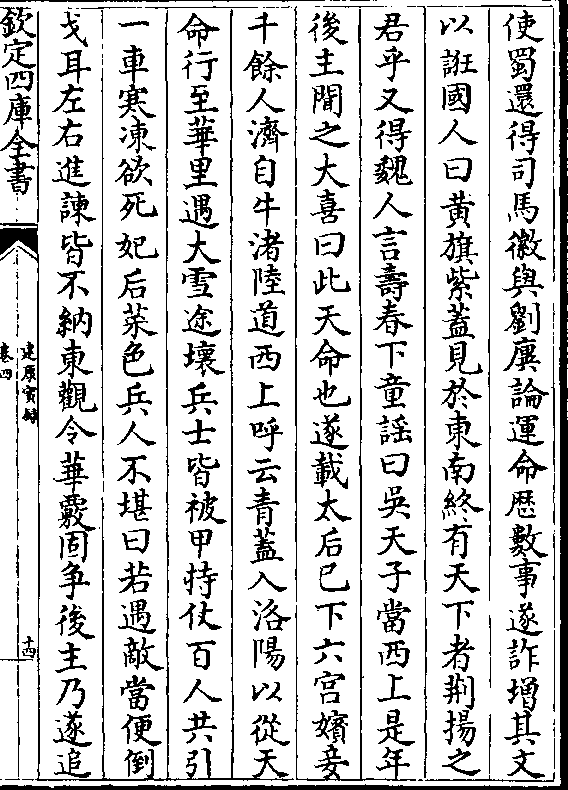 使蜀還得司馬徽與劉廙論運命厯數事遂詐增其文
以誑國人曰黄旗紫蓋見於東南終有天下者荆揚之
君乎又得魏人言壽春下童謡曰吳天子當西上是年
後主聞之大喜曰此天命也遂載太后已下六宫嬪妾
千餘人濟自牛渚陸道西上呼云青蓋入洛陽以從天
命行至華里遇大雪途壞兵士皆被甲持仗百人共引
一車寒凍欲死妃后菜色兵人不堪曰若遇敵當便倒
戈耳左右進諫皆不納東觀令華覈固争後主乃遂追
欽定四庫全書
建康實録
卷四
十四